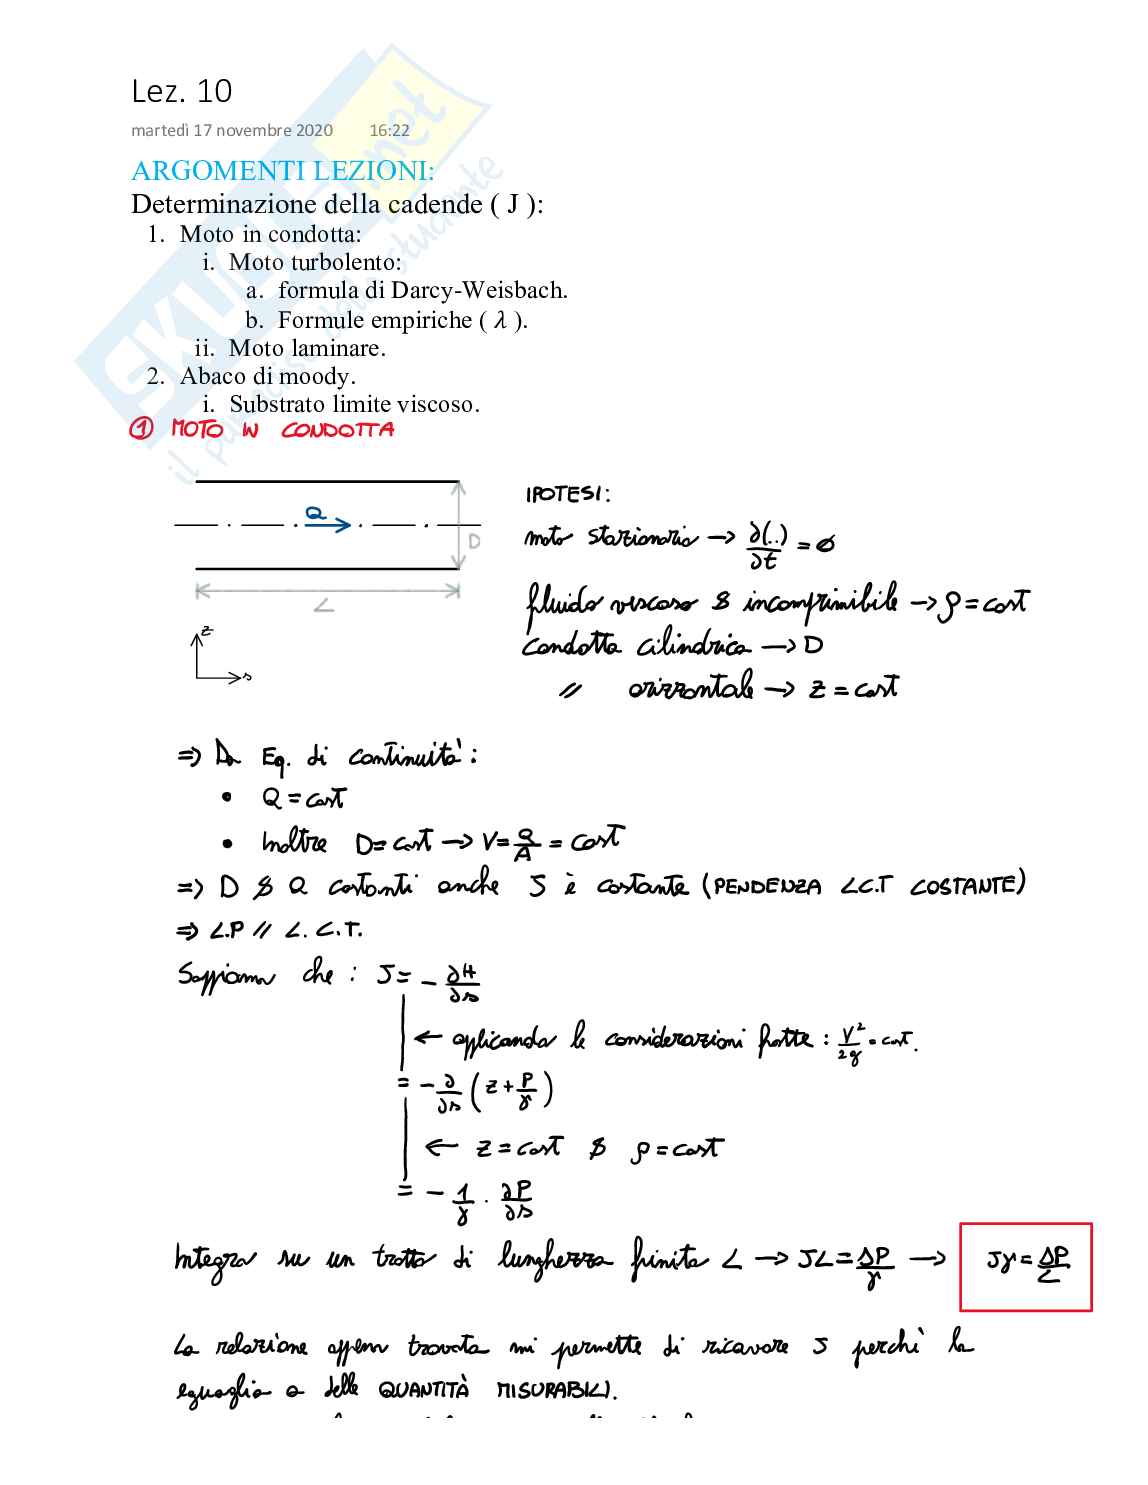 Lez. 10
martedì 17 novembre 2020 16:22
ARGOMENTI LEZIONI:
Determinazione della cadende ( J ):
1. Moto in condotta:
i. Moto turbolento:
a. formula di Darcy-Weisbach.
b. Formule empiriche ( λ ).
ii. Moto laminare.
2. Abaco di moody.
i. Substrato limite viscoso.
① MOTO IN CONDOTTA
Q
D
L
z
s
IPOTESI:
moto stazionario → ∂(..)/∂t = 0
fluido viscoso & incomprimibile → ρ = cost
condotta cilindrica → D
// orizzontale → z = cost
⇒ Da Eq. di continuità:
• Q = cost
• Inoltre D = cost → V = Q/A = cost
⇒ D & Q costanti anche J è costante (PENDENZA L.C.T COSTANTE)
⇒ L.P // L.C.T.
Sappiamo che : J = - ∂H/∂s
← applicando le considerazioni fatte : V²/2g = cost.
= - ∂/∂s ( z + P/γ )
← z = cost & ρ = cost
= - 1/γ · ∂P/∂s
Integro su un tratto di lunghezza finita L → JL = ΔP/γ → Jγ = ΔP/L
La relazione appena trovata mi permette di ricavare J perchè la
eguaglio a delle QUANTITÀ MISURABILI.
SKUOLA.net
il paradiso dello studente